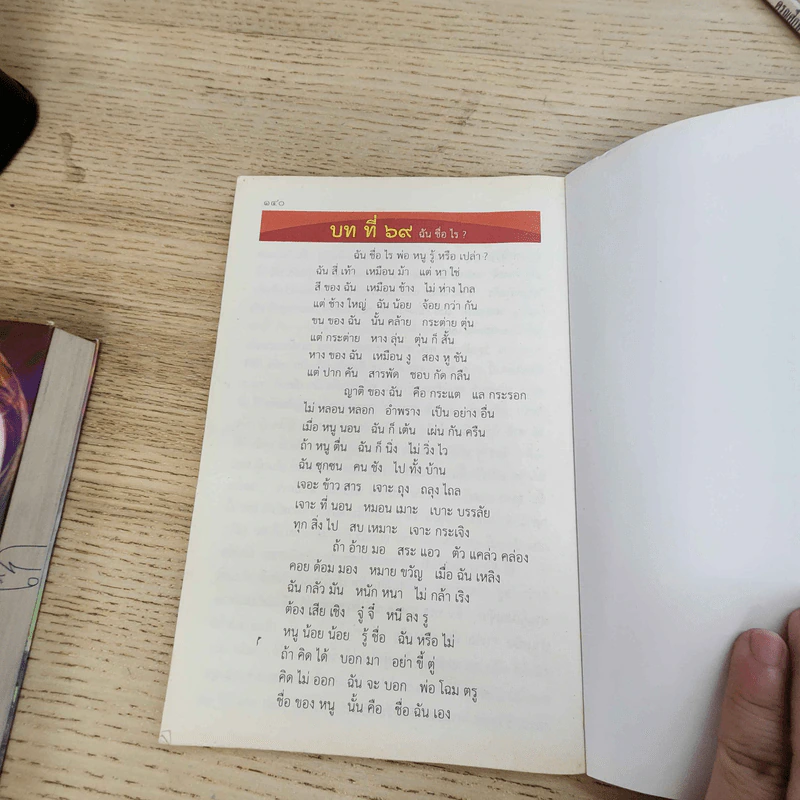 ๑๔๐
บท ที่ ๖๙ ฉัน ชื่อ ไร ?
ฉัน ชื่อ ไร พ่อ หนู รู้ หรือ เปล่า ?
ฉัน สี เท้า เหมือน ม้า แต่ หา ใช่
สี ของ ฉัน เหมือน ช้าง ไม่ ห่าง ไกล
แต่ ช้าง ใหญ่ ฉัน น้อย จ้อย กว่า กัน
ขน ของ ฉัน นั้น คล้าย กระต่าย ตุ่น
แต่ กระต่าย หาง ลุ่น ตุ่น ก็ สั้น
หาง ของ ฉัน เหมือน งู สอง หู ชัน
แต่ ปาก คัน สารพัด ชอบ กัด กลืน
ญาติ ของ ฉัน คือ กระแต แล กระรอก
ไม่ หลอน หลอก อำพราง เป็น อย่าง อื่น
เมื่อ หนู นอน ฉัน ก็ เต้น เผ่น กัน ครืน
ถ้า หนู ตื่น ฉัน ก็ นิ่ง ไม่ วิ่ง ไว
ฉัน ซุกซน คน ชัง ไป ทั้ง บ้าน
เจอะ ข้าว สาร เจาะ ถุง ถลุง ไถล
เจาะ ที่ นอน หมอน เมาะ เบาะ บรรลัย
ทุก สิ่ง ไป สบ เหมาะ เจาะ กระเจิง
ถ้า อ้าย มอ สระ แอว ตัว แคล่ว คล่อง
คอย ด้อม มอง หมาย ขวัญ เมื่อ ฉัน เหลิง
ฉัน กลัว มัน หนัก หนา ไม่ กล้า เริง
ต้อง เสีย เชิง จู๋ จี๋ หนี ลง รู
หนู น้อย น้อย รู้ ชื่อ ฉัน หรือ ไม่
ถ้า คิด ได้ บอก มา อย่า ขี้ ตู่
คิด ไม่ ออก ฉัน จะ บอก พ่อ โฉม ตรู
ชื่อ ของ หนู นั้น คือ ชื่อ ฉัน เอง